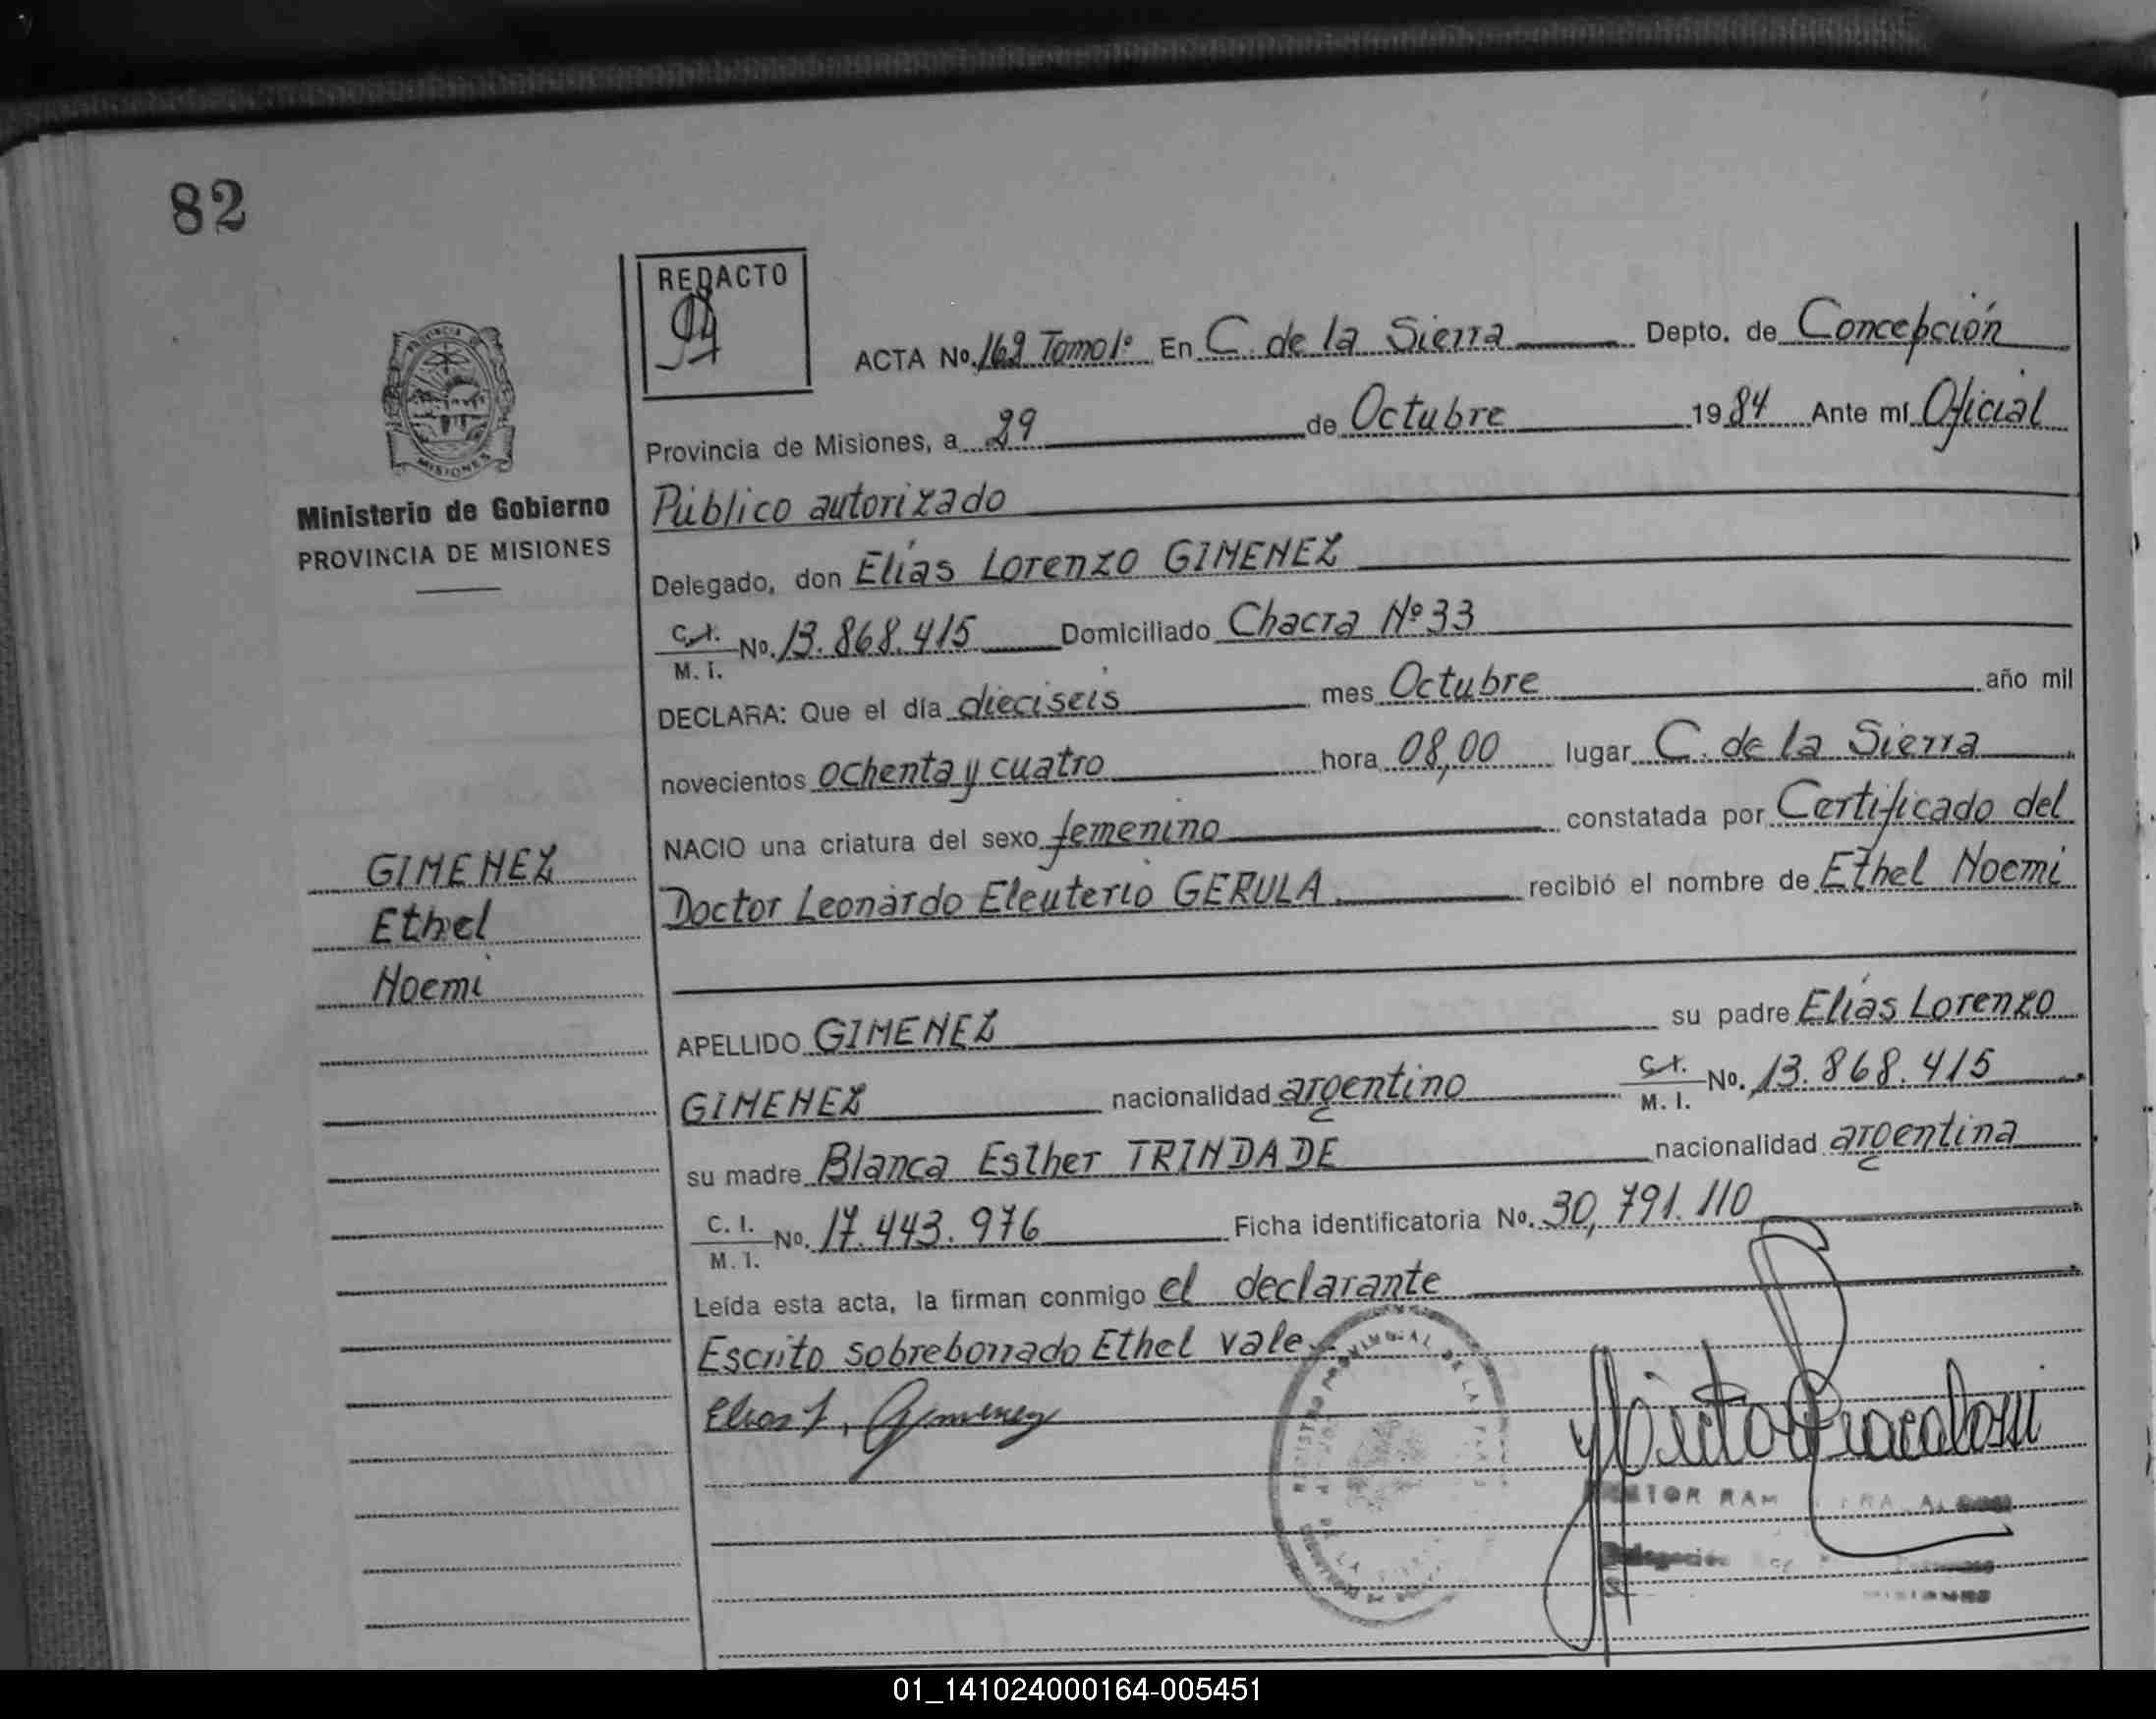 82
REDACTO
ACTA No. 162 Tomo 1º En C. de la Sierra Depto. de Concepción
Provincia de Misiones, a 29 de Octubre 1984 Ante mí Oficial
Público autorizado
Ministerio de Gobierno
PROVINCIA DE MISIONES
Delegado, don Elías Lorenzo GIMENEZ
C.I. M. I. No. 13.868.415 Domiciliado Chacra Nº 33
DECLARA: Que el día dieciseis mes Octubre año mil
novecientos ochenta y cuatro hora 08,00 lugar C. de la Sierra
NACIO una criatura del sexo femenino constatada por Certificado del
Doctor Leonardo Eleuterio GERULA recibió el nombre de Ethel Noemi
GIMENEZ
Ethel
Noemi
APELLIDO GIMENEZ su padre Elías Lorenzo
GIMENEZ nacionalidad argentino C.I. M. I. No. 13.868.415
su madre Blanca Esther TRINDADE nacionalidad argentina
C. I. M. I. No. 17.443.976 Ficha identificatoria No. 30,791.110
Leída esta acta, la firman conmigo el declarante
Escrito sobreborrado Ethel vale
Elias L. Gimenez
MISIONES
01_141024000164-005451